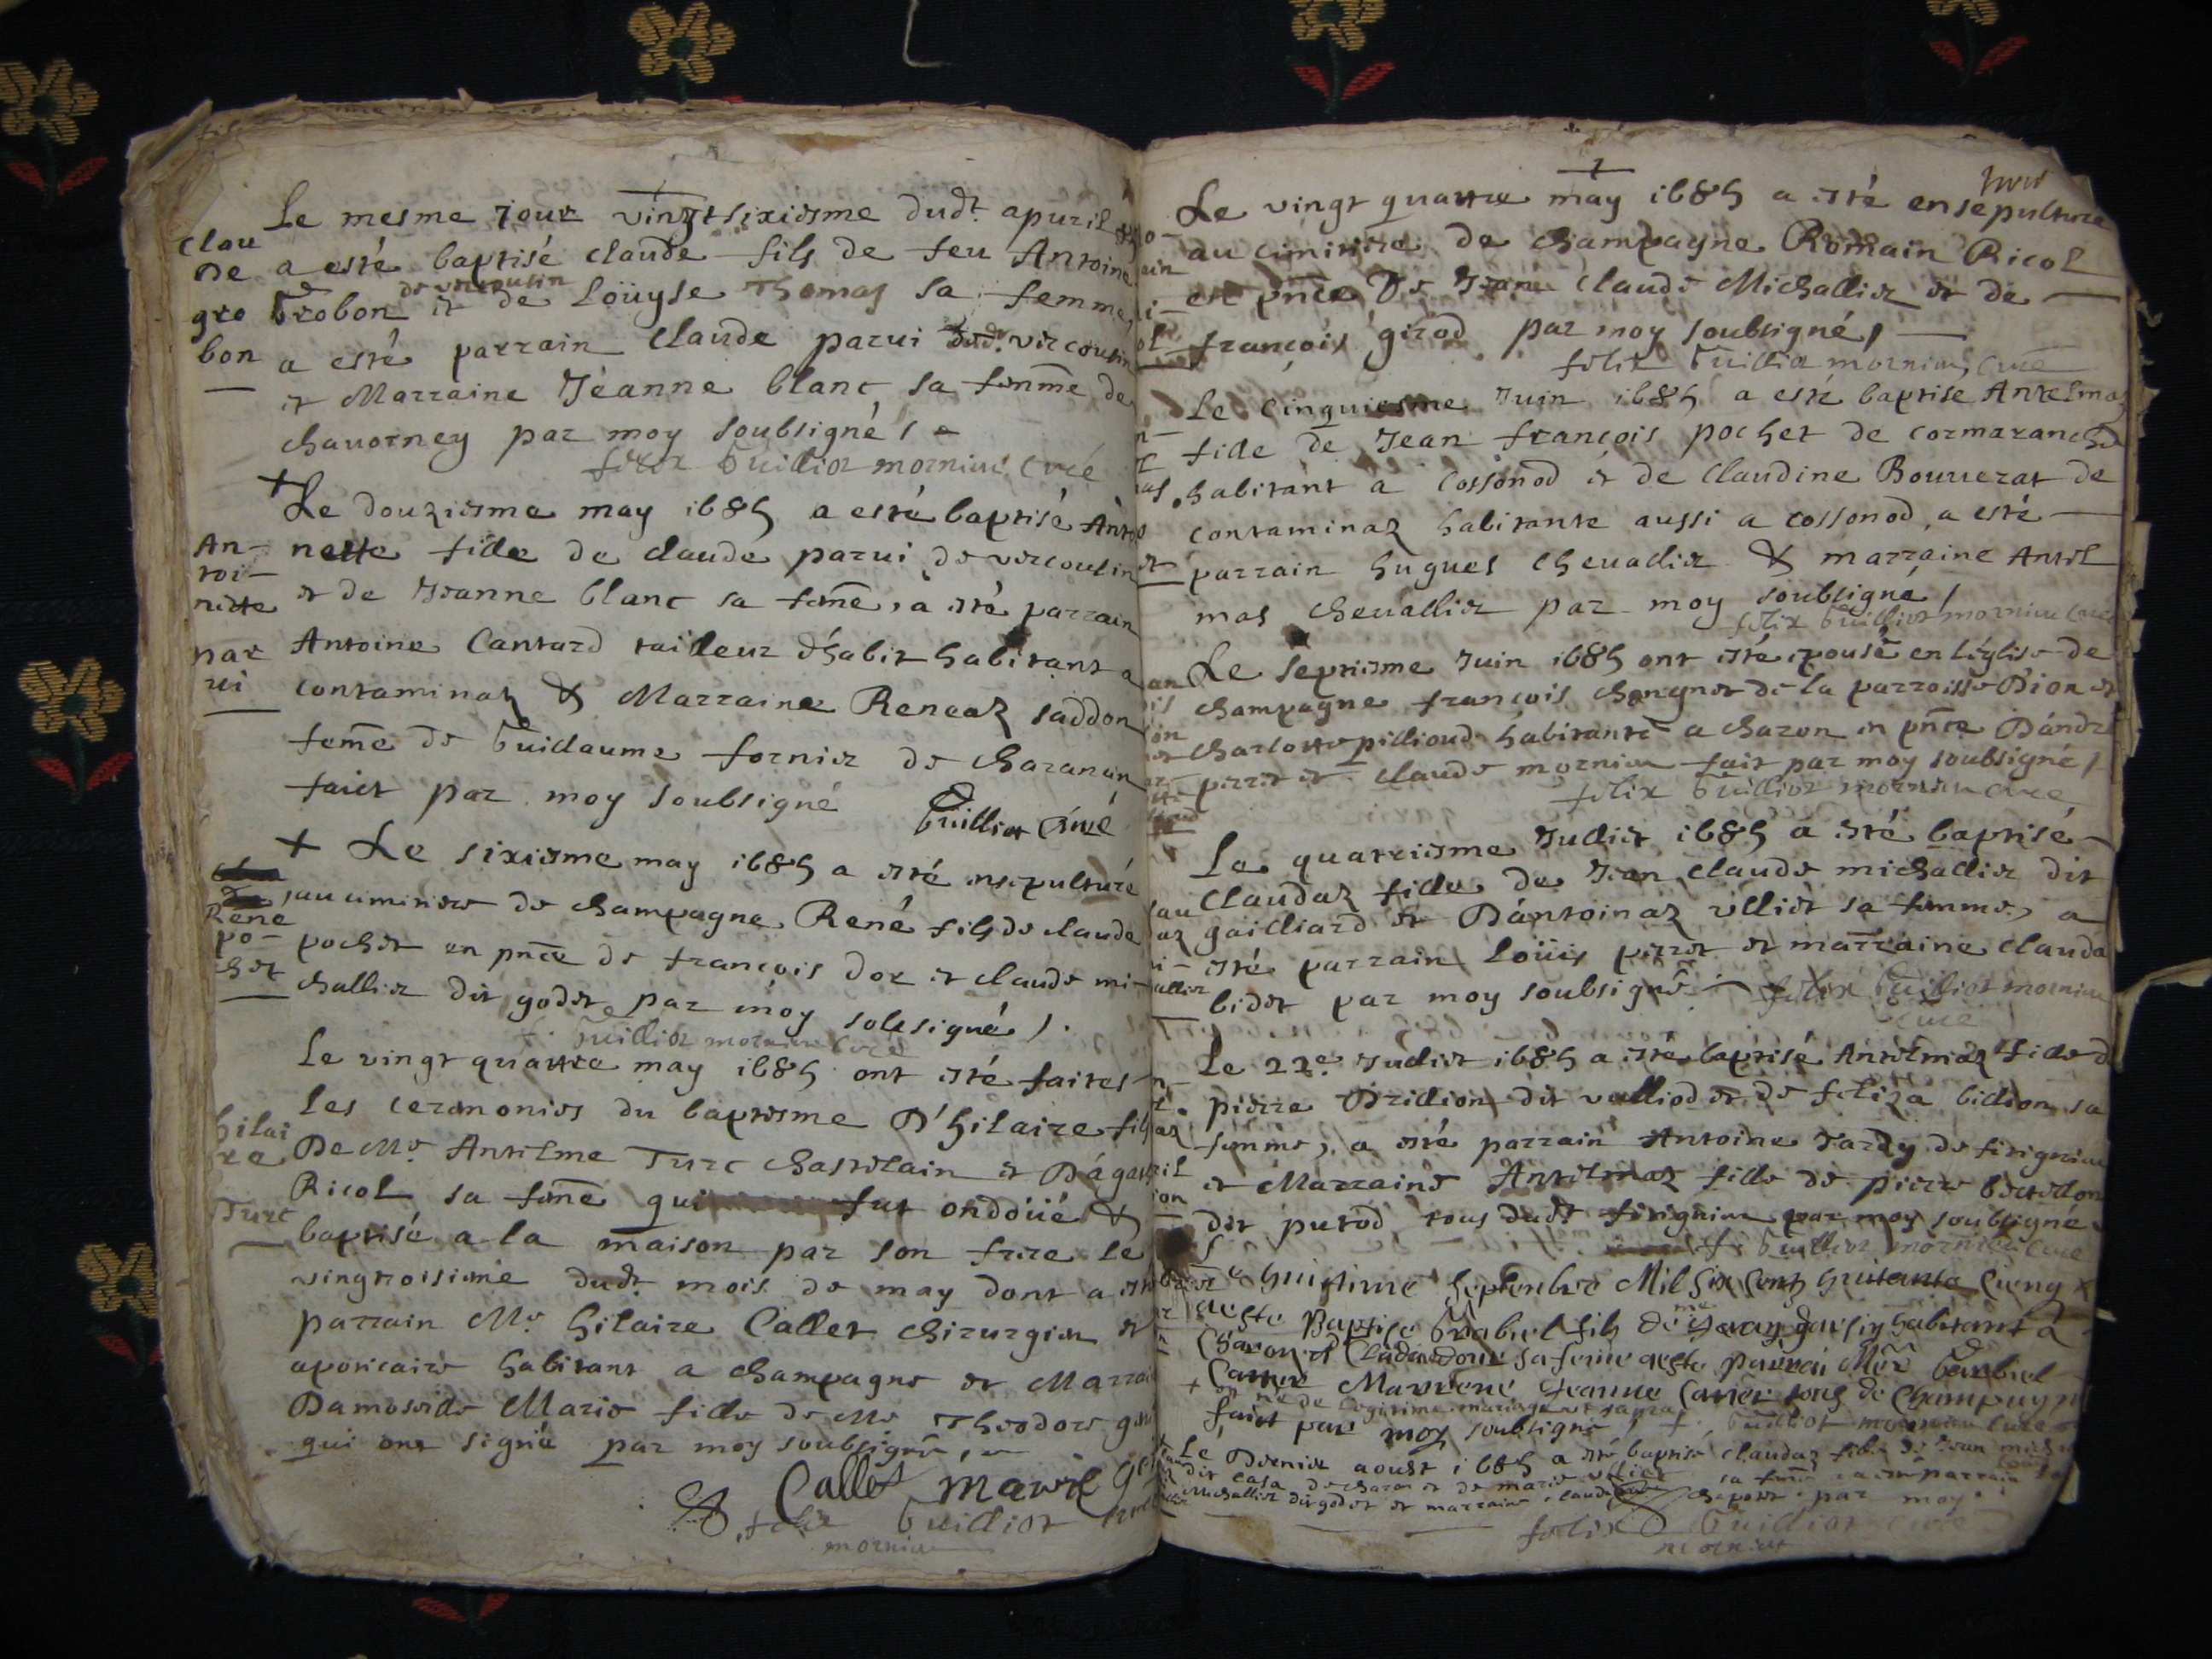 Le mesme jour vingtsixiesme dudt. apvril
Clau
de
gro
bon
a esté baptisé claude fils de feu Antoine
de vircousin
Grobon et de Loüyse Thomas sa femme,
a esté parrain Claude parui dudt. vircousin
et Marraine Jeanne blanc sa femme de
chavorney par moy soubsigné /
felix Guilliot mornieu curé
+ Le douziesme may 1685 a esté baptisé Antoi
An-
toi-
nette
par
ui
nette fille de claude parui de vercousin
et de Jeanne blanc sa feme, a esté parrain
Antoine Cantard tailleur d'habit habitant a
contaminaz & Marraine Reneaz saddon
feme de Guillaume fornier de Charancin
faict par moy soubsigné
Guilliot Curé
+ Le sixiesme may 1685 a esté ensepulturé
René
po-
chet
au cimitiere de champagne René fils de claude
pochet en pnce de françois dor et claude mi-
challier dit godet par moy soubsigné /.
f. Guilliot mornieu Curé
Le vingt quattre may 1685 ont esté faites
hilai
re
Turc
les ceremonies du baptesme D'hilaire fils
De Me. Antelme Turc chastelain et D'agat
Ricol sa feme qui fut ondoüé &
baptisé a la maison par son frere le
vingtroisieme dudt. mois de may dont a esté
parrain Me. hilaire Callet chirurgien et
apoticaire habitant a champagne et Marrai
Damoiselle Marie fille de Me Theodore
qui ont signé par moy soubsigné,
Callet marie
felix Guilliot
mornieu
Le vingt quattre may 1685 a esté ensepulturé
au cimitiere de champagne Romain Ricol
en pnce De Jean Claude Michallier et de
françois girod par moy soubsigné,
felix Guilliot mornieu, Curé
Le cinquiesme Juin 1685 a esté baptise Antelmaz
fille de Jean françois pochet de cormaranche
habitant a cossonod et de Claudine Bouverat de
contaminaz habitante aussi a cossonod, a esté
parrain hugues chevallier & marraine Antel
mas chevallier par moy soubsigné /
felix Guilliot mornieu curé
Le septiesme Juin 1685 ont esté epousé en l'église de
champagne françois de la parroisse
Charlotte pillioud habitante a chazon en pnce D'andré
perret et claude mornieu fait par moy soubsigné /
felix Guilliot mornieu curé
Le quattriesme Julliet 1685 a esté baptisé
Claudaz fille de Jean claude michallier dit
gailliard et D'antoinaz villiet sa femme, a
esté parrain Loüis perret et marraine clauda
bidet par moy soubsigné felix Guilliot mornieu
curé
Le 22e. Julliet 1685 a esté baptisé Antelmaz fille d
pierre Drillion dit valliod et de feliza billion sa
femme, a esté parrain Antoine Tardy de firignieu
et Marraine Antelmaz fille de pierre
dit putod tous dudt firignieu par moy soubsigné
f. Guilliot mornieu curé
huictieme septembre Mil six cents huitante cienq
a este Baptise Grabiel fils de habitant a
Charon et sa feme a este parrai Mer Garbiel
Carrier Marrene Jeanne Carrier tous de Champagne
né de legitime mariage
faict par moy soubsigné f. Guilliot mornieu curé
Le Dernier aoust 1685 a esté baptisé claudaz fille de Jean
dit casa de charon et de marie villiet sa feme a esté parrain
Michallier dit godet et marraine claud par moy
felix Guilliot curé
mornieu